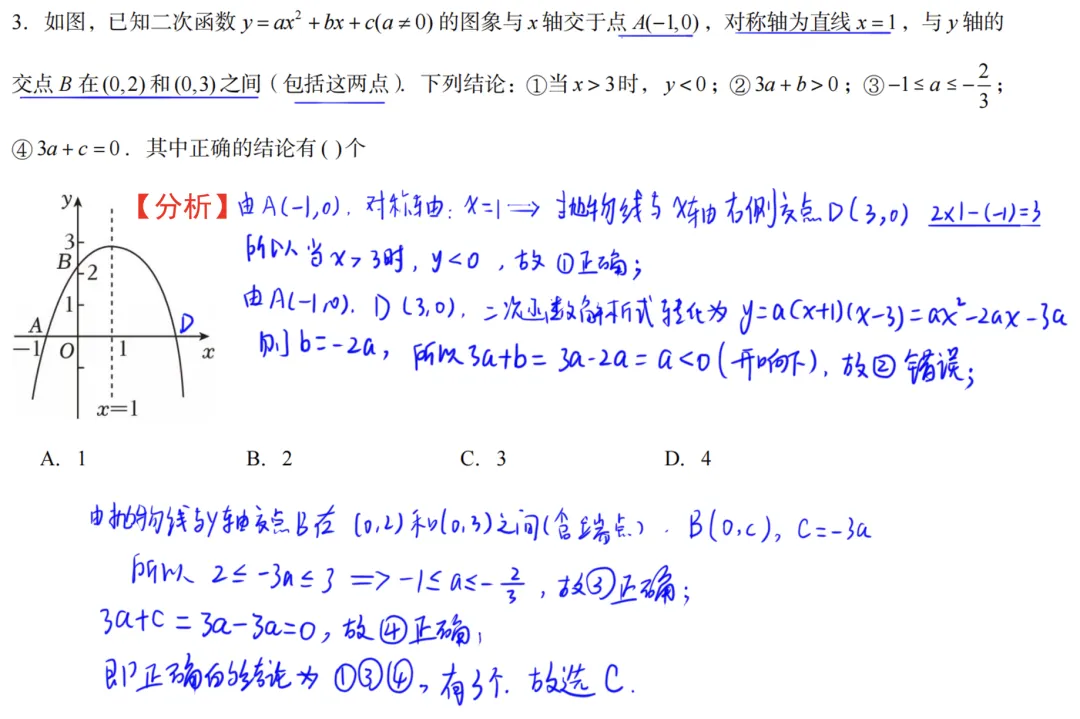 3. 如图，已知二次函数 y=ax²+bx+c(a≠0) 的图象与 x 轴交于点 A(−1,0)，对称轴为直线 x=1，与 y 轴的
交点 B 在(0,2)和(0,3)之间（包括这两点）. 下列结论：①当 x>3时，y<0；②3a+b>0；③−1≤a≤−2/3；
④3a+c=0．其中正确的结论有( )个
y
3
B
2
1
A
D
−1
O
1
x
x=1
【分析】由A(-1,0). 对称轴: x=1⟹ 抛物线与x轴右侧交点D(3,0) 2×1-(-1)=3
所以当x>3时, y<0, 故①正确;
由A(-1,0). D(3,0), 二次函数解析式转化为 y=a(x+1)(x-3)=ax²-2ax-3a
则b=-2a, 所以3a+b=3a-2a=a<0(开口向下), 故②错误;
A. 1 B. 2 C. 3 D. 4
由抛物线与y轴交点B在(0,2)和(0,3)之间(含端点). B(0,c), c=-3a
所以 2≤-3a≤3 => -1≤a≤-2/3, 故③正确;
3a+c=3a-3a=0, 故④正确;
即正确的结论为①③④, 有3个. 故选C.